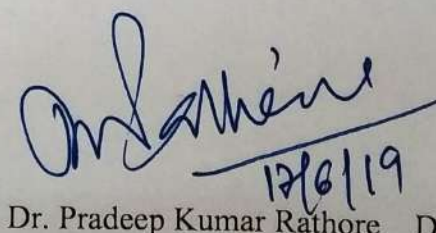 17/6/19
Dr. Pradeep Kumar Rathore D